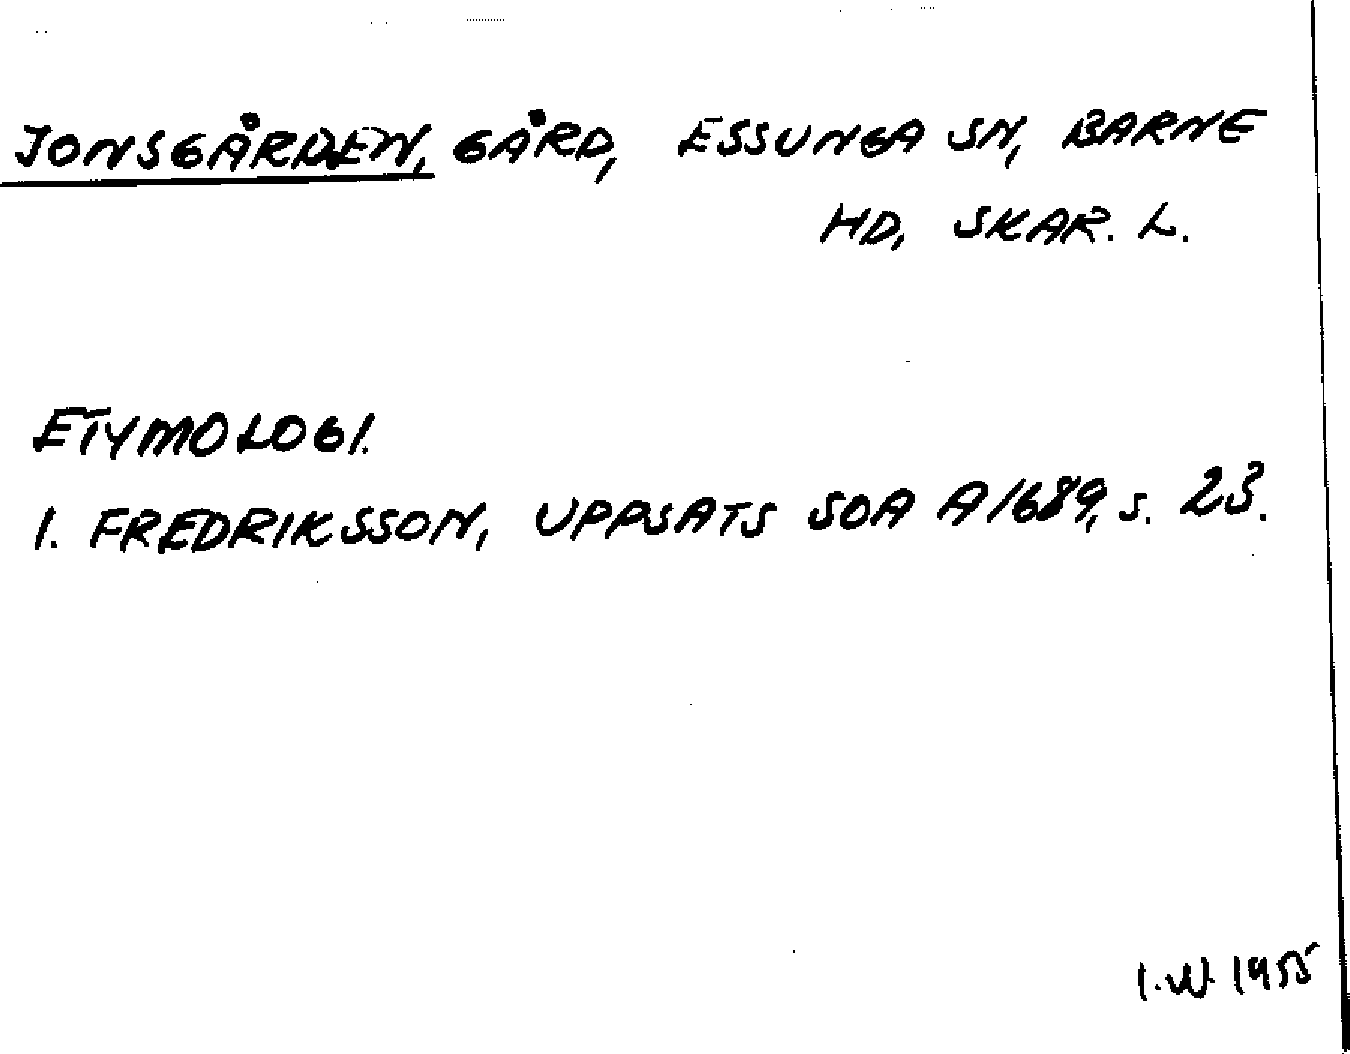 JONSGÅRDEN, GÅRD, ESSUNGA SN, BARNE
HD, SKAR. L.
ETYMOLOGI.
I. FREDRIKSSON, UPPSATS SOA A1689, s. 23.
I.W. 1955